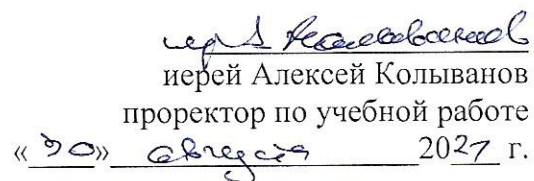 иер А Колыванов
иерей Алексей Колыванов
проректор по учебной работе
«30» августа 2021 г.